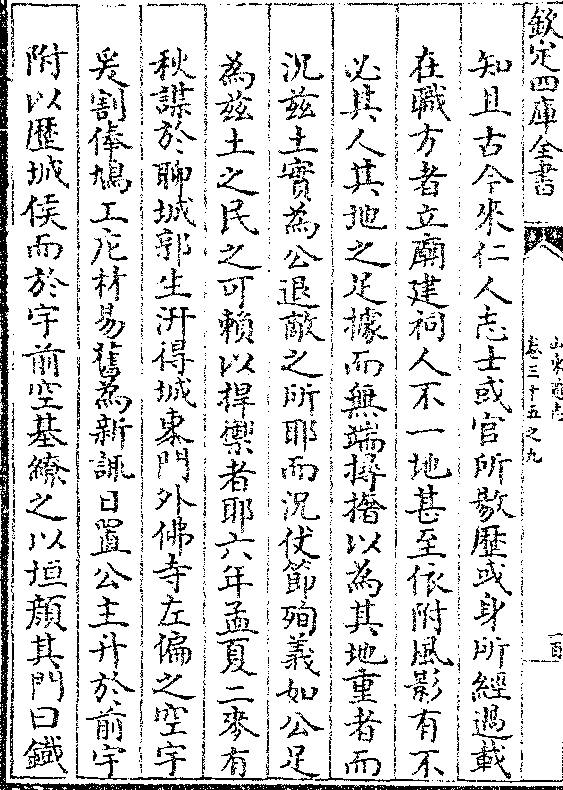 欽定四庫全書
山東通志
卷三十五之九
知且古今來仁人志士或官所歇歷或身所經過載
在職方者立廟建祠人不一地甚至依附風影有不
必其人其地之足據而無端撏撦以為其地重者而
況兹土實為公退敵之所耶而況仗節殉義如公足
為兹土之民之可賴以捍禦者耶六年孟夏二麥有
秋謀於聊城郭生汧得城東門外佛寺左偏之空宇
爰割俸鳩工庀材易舊為新諏日置公主升於前宇
附以歷城侯而於宇前空基繚之以垣顔其門曰鐵